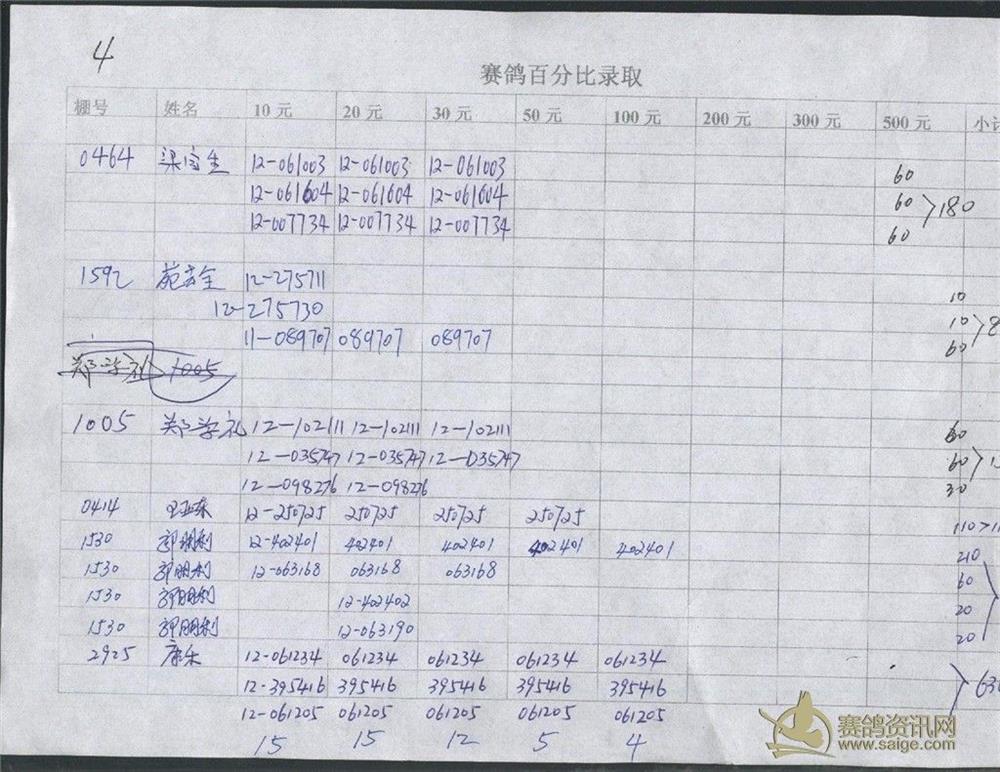 4
赛鸽百分比录取
棚号 姓名 10元 20元 30元 50元 100元 200元 300元 500元 小计
0464 梁宝生 12-061003 12-061003 12-061003 60
12-061604 12-061604 12-061604 60 >180
12-007734 12-007734 12-007734 60
1592 苑吉全 12-275711 10
12-275730 10
11-089707 089707 089707 60
郑学礼 1005
1005 郑学礼 12-102111 12-102111 12-102111 60
12-035747 12-035747 12-035747 60
12-098276 12-098276 30
0414 王亚东 12-250725 250725 250725 250725 110
1530 郭明利 12-402401 402401 402401 402401 402401 210
1530 郭明利 12-063168 063168 063168 60
1530 郭明利 12-402402 20
1530 郭明利 12-063190 20
2925 康乐 12-061234 061234 061234 061234 061234
12-395416 395416 395416 395416 395416 630
12-061205 061205 061205 061205 061205
15 15 12 5 4
赛鸽资讯网
www.saige.com